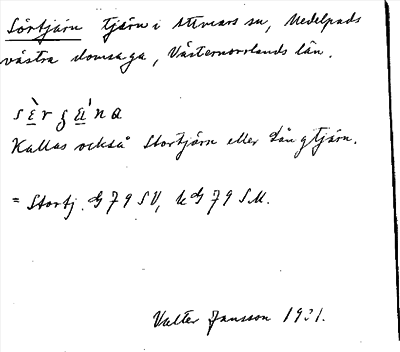 Sörtjärn tjärn i Attmars sn, Medelpads
västra domsaga, Västernorrlands län.
Kallas också Stortjärn eller Långtjärn.
= Stortj. G 79 SV, k G 79 SM.
Valter Jansson 1931.